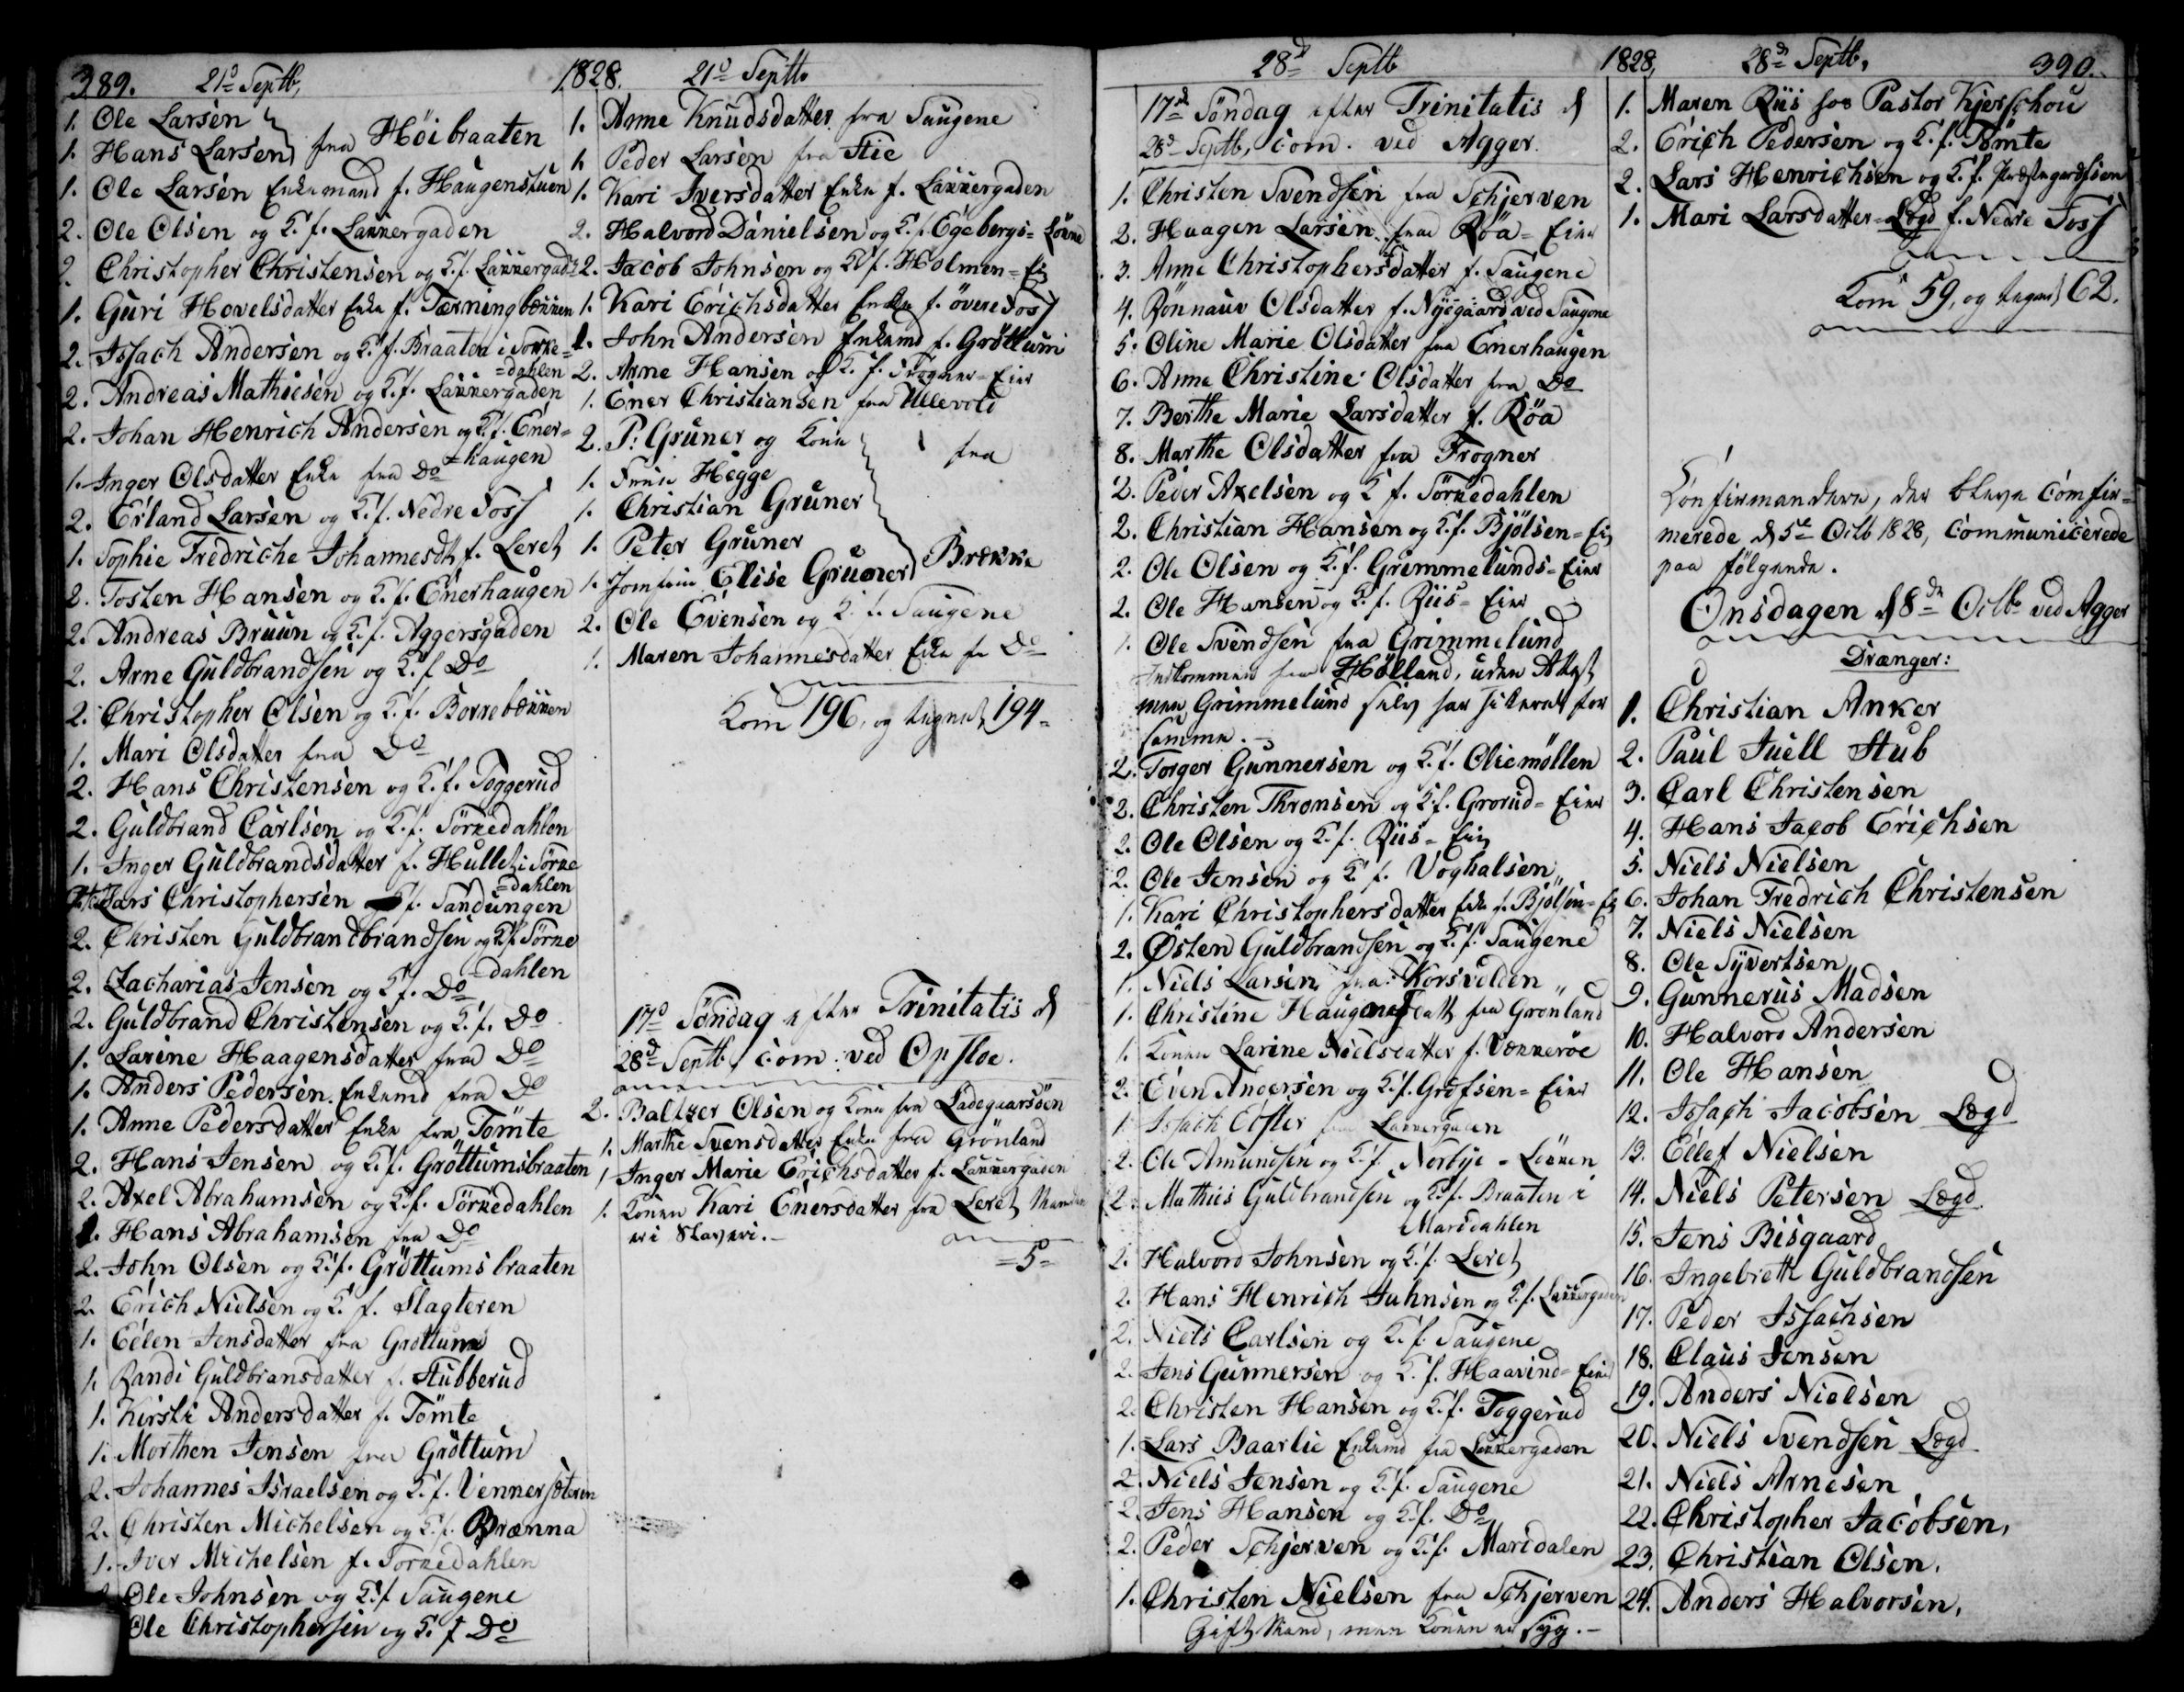 389. 21d Septb, 1828. 21d Septb.
1. Ole Larsen
1. Hans Larsen } fra Höibraaten
1. Ole Larsen Enkemand f. Haugenstuen
2. Ole Olsen og K. f. Lakkergaden
2. Christopher Christensen og K. f. Lakkergad:
1. Guri Hovelsdatter Enke f. Tærningbækken
2. Issach Andersen og K. f. Braaten i Sörke=
=dahlen
2. Andreas Mathiesen og K. f. Lakkergaden
2. Johan Henrich Andersen og K. f. Ener=
=haugen
1. Inger Olsdatter Enke fra Do
2. Erland Larsen og K. f. Nedre Foss
1. Sophie Fredriche Johannesdtr f. Leret
2. Tosten Hansen og K. f. Enerhaugen
2. Andreas Bruun og K. f. Aggersgaden
2. Arne Guldbrandsen og K. f. Do
2. Christopher Olsen og K. f. Borrebækken
1. Mari Olsdatter fra Do
2. Hans Christensen og K. f. Toggerud
2. Guldbrand Carlsen og K. f. Sörkedahlen
1. Inger Guldbrandsdatter f. Hullet i Sörke
=dahlen
Lars Christophersen f. Sandungen
2. Christen Guldbrandbrandsen og K. f. Sörke
=dahlen
2. Zacharias Jensen og K. f. Do
2. Guldbrand Christensen og K. f. Do
1. Larine Haagensdatter fra Do
1. Anders Pedersen Enkemd fra Do
1. Anne Pedersdatter Enke fra Tömte
2. Hans Jensen og K. f. Gröttumsbraaten
2. Axel Abrahamsen og K. f. Sörkedahlen
1. Hans Abrahamsen fra Do
2. John Olsen og K. f. Gröttumsbraaten
2. Erich Nielsen og K. f. Slagteren
1. Eelen Jensdatter fra Grøttum
1. Randi Guldbransdatter f. Stubberud
1. Kirsti Andersdatter f. Tömte
1. Morthen Jensen fra Gröttum
2. Johannes Israelsen og K. f. Vennersæteren
2. Christen Michelsen og K. f. Brænna
1. Iver Michelsen f. Sorkedahlen
Ole Johnsen og K. f. Saugene
Ole Christophersen og K. f. Do
1. Anne Knudsdatter fra Saugene
1. Peder Larsen fra Stie
1. Kari Iversdatter Enke f. Lakkergaden
2. Halvord Danielsen og K. f. Egebergs=Lökke
2. Jacob Johnsen og K. f. Holmen=Ei
1. Kari Erichsdatter Enke f. övere Foss
1. John Andersen Enkemd f. Gröttum
2. Arne Hansen og K. f. Frogner=Eier
1. Ener Christiansen fra Ullevold
2. P. Gruner og Kone
1. Hegge
1. Christian Gruner
1. Peter Gruner
1. Jomfrue Elise Gruner } fra Brække
2. Ole Evensen og K. f. Saugene
1. Maren Johannesdatter Enke fr. Do
Kom 196, og tegnet 194=
17d Söndag efter Trinitatis d
28d Septb, com: ved Opsloe.
2. Baltzer Olsen og Kone fra Ladegaarsöen
1. Marthe Svensdatter Enke fra Grönland
1. Inger Marie Erichsdatter f. Lakkergaden
1. Konen Kari Enersdatter fra Leret Manden
er i Slaveri.
=5=
28d Septb 1828, 28de Septb, 390.
17de Söndag efter Trinitatis d
28d Septb, com. ved Agger.
1. Christen Svendsen fra Schjerven
2. Haagen Larsen fra Röa=Eier
3. Anne Christophersdatter f. Saugene
4. Rönnauv Olsdatter f. Nyegaard ved Saugene
5. Oline Marie Olsdatter fra Enerhaugen
6. Anne Christine Olsdatter fra Do
7. Berthe Marie Larsdatter f. Röa
8. Marthe Olsdatter fra Frogner
2. Peder Axelsen og K f. Sörkedahlen
2. Christian Hansen og K. f. Bjölsen=Ei
2. Ole Olsen og K. f. Grimmelunds=Eier
2. Ole Hansen og K. f. Riis=Eier
1. Ole Svendsen fra Grimmelund
Indkommen fra Hölland, uden Attest
men Grimmelund selv har sikeret for
samme.
2. Torger Gunnersen og K. f. Oliemöllen
2. Christen Thronsen og K. f. Grorud=Eier
2. Ole Olsen og K. f. Riis=Ei
2. Ole Jensen og K. f. Voghalsen
1. Kari Christophersdatter Enke f. Bjölsen=Ei
2. Østen Guldbrandsen og K. f. Saugene
1. Niels Larsen fra Korsvolden
1. Christine Haugensdatt fra Gronland
1. Konen Larine Nielsdatter f. Vækkeröe
2. Even Andersen og K. f. Grefsen=Eier
1. Issach fra Lakkergaden
2. Ole Amundsen og K. f. Norbye=Lökken
2. Mathis Guldbrandsen og K. f. Braaten i
Maridahlen
2. Halvord Johnsen og K. f. Leret
2. Hans Henrich Juhnsen og K. f. Lakkergaden
2. Niels Carlsen og K. f. Saugene
2. Jens Gunnersen og K. f. Haavind=Eier
2. Christen Hansen og K. f. Toggerud
1. Lars Baarlie Enkemd fra Lakkergaden
2. Niels Jensen og K. f. Saugene
2. Jens Hansen og K. f. Do
2. Peder Schjerven og K. f. Maridalen
1. Christen Nielsen fra Schjerven
Gift Mand, men Konen er syg.
1. Maren Riis hos Pastor Kjerschou
2. Erich Pedersen og K. f. Tömte
2. Lars Henrichsen og K. f. Præstegardseien
1. Mari Larsdatter=Lægd f. Nedre Foss
Kom 59, og tegnet 62.
Konfirmanderne, der bleve comfir=
merede d 5te Octb 1828, communicerede
paa følgende.
Onsdagen d 8de Octb. ved Agger
Drænger:
1. Christian Anker
2. Paul Juell Stub
3. Carl Christensen
4. Hans Jacob Erichsen
5. Niels Nielsen
6. Johan Fredrich Christensen
7. Niels Nielsen
8. Ole Syvertsen
9. Gunnerus Madsen
10. Halvord Andersen
11. Ole Hansen
12. Issach Jacobsen Lægd
13. Ellef Nielsen
14. Niels Petersen Lægd.
15. Jens Bisgaard
16. Ingebreth Guldbrandsen
17. Peder Issachsen
18. Claus Jensen
19. Anders Nielsen
20. Niels Svendsen Lægd
21. Niels Arnesen
22. Christopher Jacobsen,
23. Christian Olsen.
24. Anders Halvorsen,